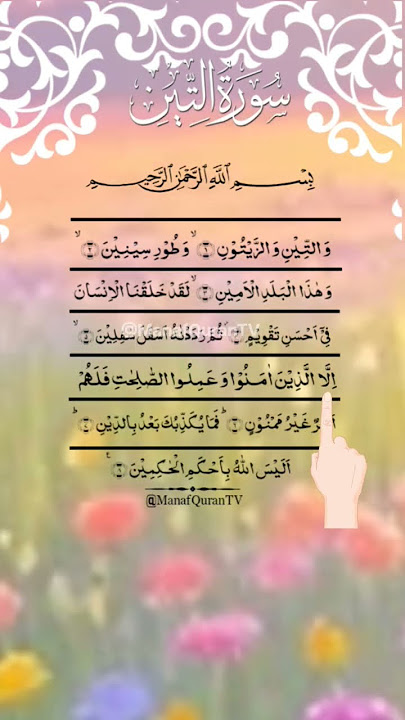 سُورَةُ التِّينِ
بِسْمِ ٱللَّهِ ٱلرَّحْمَٰنِ ٱلرَّحِيمِ
وَالتِّيْنِ وَالزَّيْتُوْنِ ۙ﴿١﴾ وَطُوْرِ سِيْنِيْنَ ۙ﴿٢﴾
وَهٰذَا الْبَلَدِ الْاَمِيْنِ ۙ﴿٣﴾ لَقَدْ خَلَقْنَا الْاِنْسَانَ
فِيْٓ اَحْسَنِ تَقْوِيْمٍ ﴿٤﴾ ثُمَّ رَدَدْنٰهُ اَسْفَلَ سٰفِلِيْنَ ۙ﴿٥﴾
@ManafQuranTV
اِلَّا الَّذِيْنَ اٰمَنُوْا وَعَمِلُوا الصّٰلِحٰتِ فَلَهُمْ
اَجْرٌ غَيْرُ مَمْنُوْنٍ ؕ﴿٦﴾ فَمَا يُكَذِّبُكَ بَعْدُ بِالدِّيْنِ ؕ﴿٧﴾
اَلَيْسَ اللّٰهُ بِاَحْكَمِ الْحٰكِمِيْنَ ﴿٨﴾
@ManafQuranTV